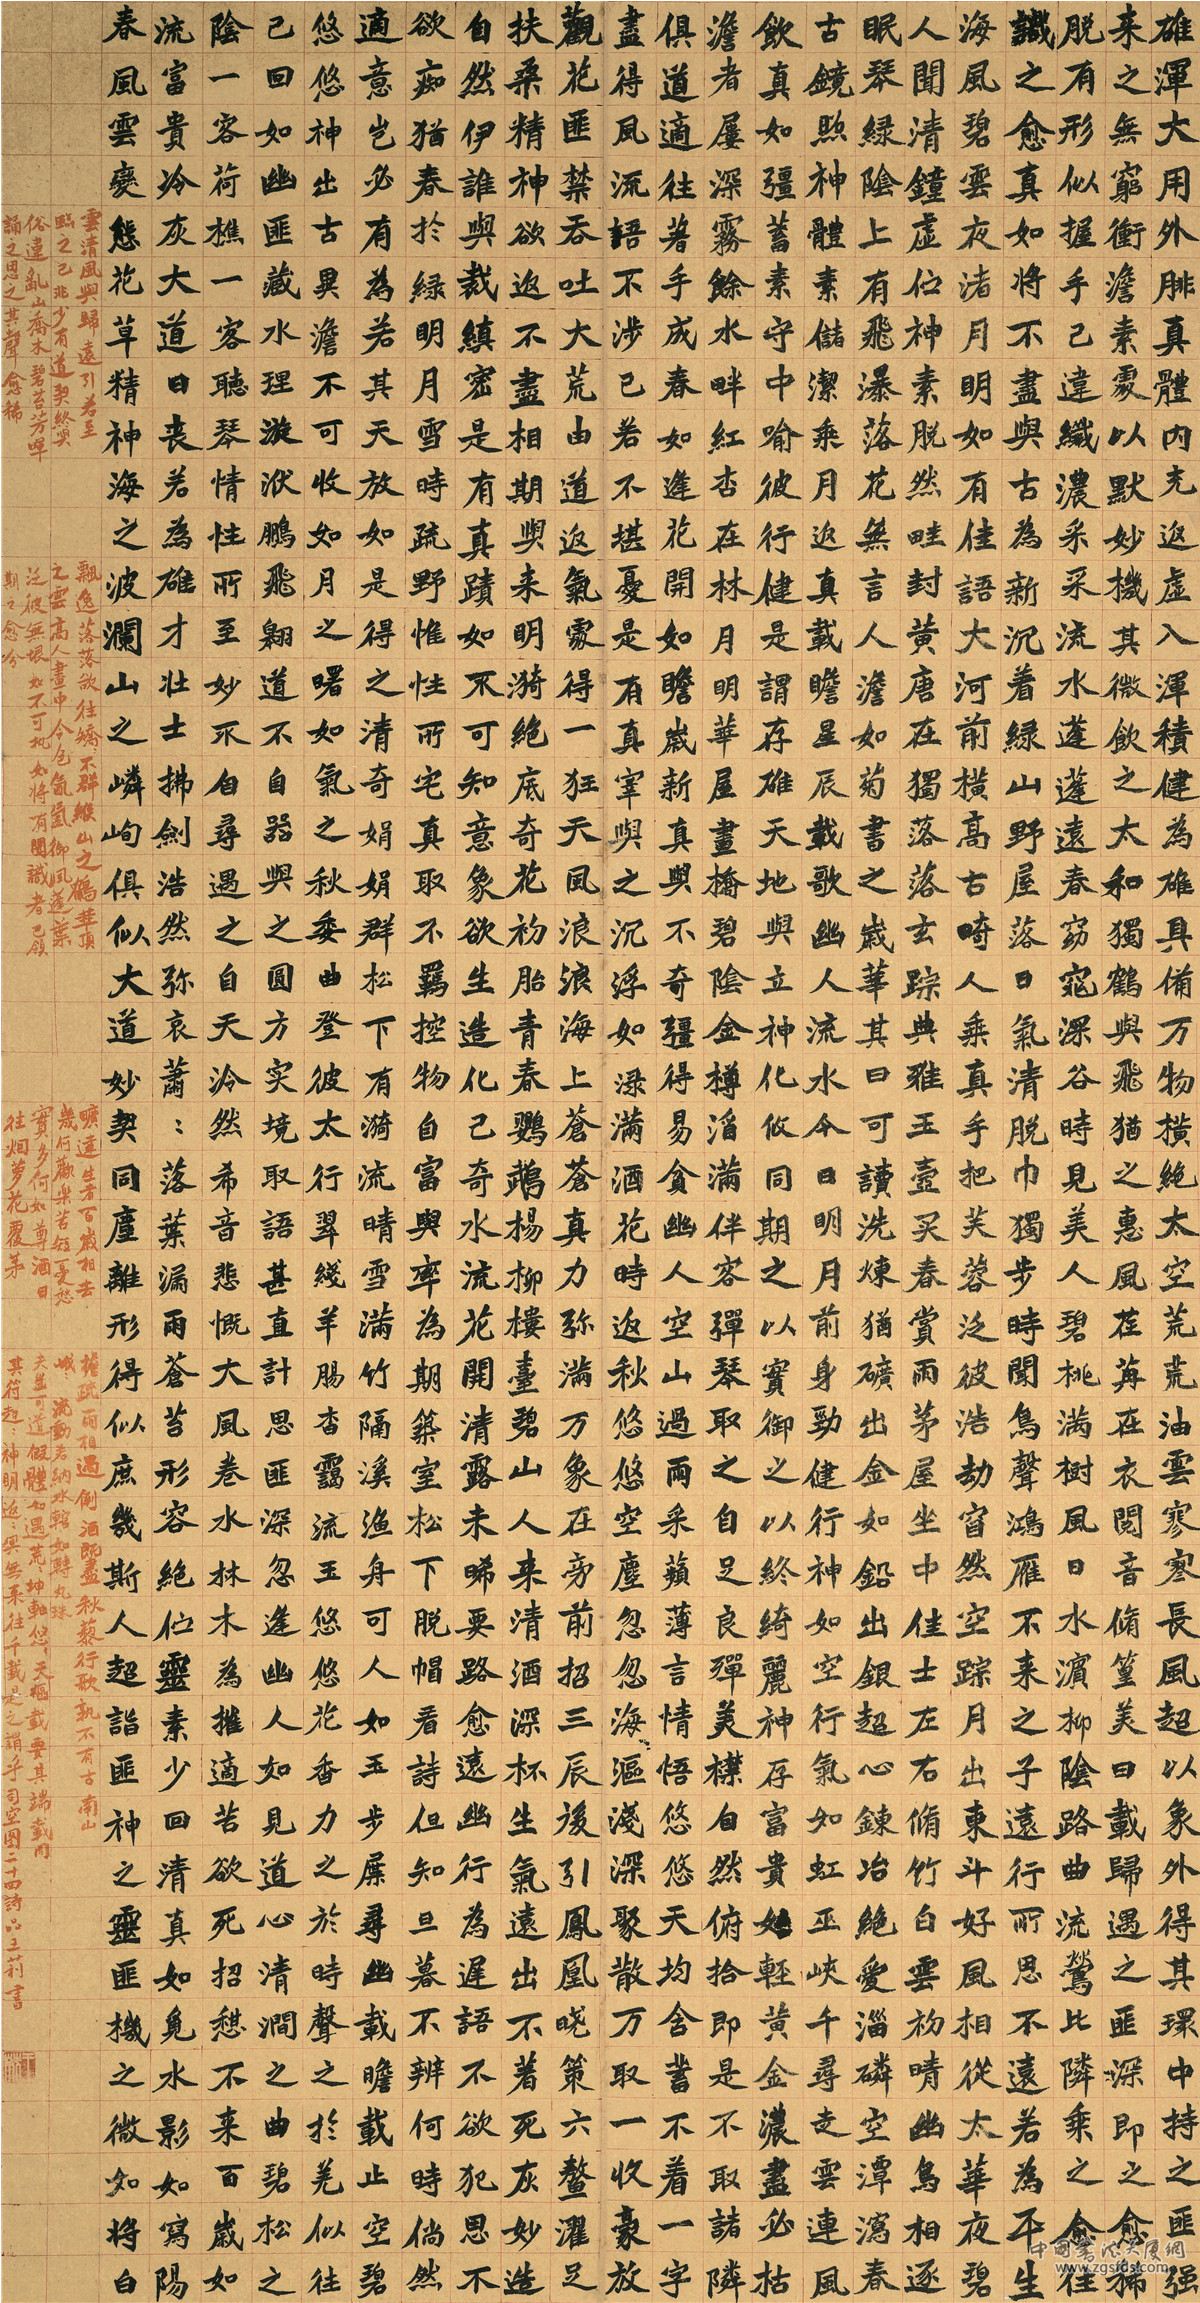 雄渾大用外腓真體內充返虛入渾積健為雄具備万物橫絕太空荒荒油雲寥寥長風超以象外得其環中持之匪强
来之無窮衝澹素處以默妙機其微飲之太和獨鶴與飛猶之惠風荏苒在衣閱音脩篁美曰載歸遇之匪深即之愈稀
脱有形似握手已違纖濃采采流水蓬蓬遠春窈窕深谷時見美人碧桃滿樹風日水濱柳陰路曲流鶯比隣乘之愈往
識之愈真如將不盡與古為新沉着緑山野屋落日氣清脱巾獨步時聞鳥聲鴻雁不来之子遠行所思不遠若為平生
海風碧雲夜渚月明如有佳語大河前橫高古畸人乘真手把芙蓉泛彼浩劫窅然空踪月出東斗好風相從太華夜碧
人聞清鐘虛佇神素脱然畦封黃唐在獨落落玄踪典雅玉壺买春賞雨茅屋坐中佳士左右脩竹白雲初晴幽鳥相逐
眠琴緑陰上有飛瀑落花無言人澹如菊書之歲華其曰可讀洗煉猶礦出金如鉛出銀超心鍊冶絕愛淄磷空潭瀉春
古鏡照神體素儲潔乘月返真載瞻星辰載歌幽人流水今日明月前身勁健行神如空行氣如虹巫峽千尋走雲連風
飲真如彊蓄素守中喻彼行健是謂存雄天地與立神化攸同期之以實御之以終綺麗神存富貴始輕黃金濃盡必枯
澹者屢深霧餘水畔紅杏在林月明華屋畫橋碧陰金樽滔滿伴客彈琴取之自足良殫美襟自然俯拾即是不取諸隣
俱道適往著手成春如逢花開如瞻歲新真與不奇彊得易貧幽人空山過雨采蘋薄言情悟悠悠天均含蓄不着一字
盡得風流語不涉已若不堪憂是有真宰與之沉浮如渌滿酒花時返秋悠悠空塵忽忽海漚淺深聚散万取一收豪放
觀花匪禁吞吐大荒由道返氣處得一狂天風浪浪海上蒼蒼真力弥滿万象在旁前招三辰後引鳳凰晓策六鳌濯足
扶桑精神欲返不盡相期與来明漪絶底奇花初胎青春鸚鵡楊柳樓臺碧山人来清酒深杯生氣遠出不着死灰妙造
自然伊誰與裁縝密是有真蹟如不可知意象欲生造化己奇水流花開清露未晞要路愈遠幽行為遲語不欲犯思不
欲痴猶春於緑明月雪時疏野惟性所宅真取不羈控物自富與率為期築室松下脱帽看詩但知旦暮不辨何時倘然
適意豈必有為若其天放如是得之清奇娟娟群松下有漪流晴雪滿竹隔溪漁舟可人如玉步屧尋幽載瞻載止空碧
悠悠神出古異澹不可收如月之曙如氣之秋委曲登彼太行翠綫羊腸杳靄流玉悠悠花香力之於時聲之於羌似往
已回如幽匪藏水理漩洑鵬飛翱道不自器與之圓方实境取語甚直計思匪深忽逢幽人如見道心清澗之曲碧松之
陰一客荷樵一客聽琴情性所至妙不自尋遇之自天泠然希音悲慨大風卷水林木為摧適苦欲死招憩不来百歲如
流富貴冷灰大道日丧若為雄才壯士拂劍浩然弥哀蕭:落葉漏雨蒼苔形容絕佇靈素少回清真如覓水影如寫陽
春風雲變態花草精神海之波瀾山之嶙峋俱似大道妙契同塵離形得似庶幾斯人超詣匪神之靈匪機之微如將白
雲清風與歸遠引若至
臨之已非少有道契終與
俗違亂山喬木碧苔芳暉
誦之思之其聲愈稀
飄逸落落欲往矯不群緱山之鶴華頂
之雲高人畫中令色氤氳御風蓬葉
泛彼無垠如不可执如將有聞識者已领
期之愈分
曠達生者百歲相去
幾何歡樂苦短憂愁
實多何如尊酒日
往烟萝花覆茅
檐疏雨相過倒酒既盡杖藜行歌孰不有古南山
峨:流動若納水輨如轉丸珠
夫豈可道假體如遇荒:坤軸悠:天樞載要其端載同
其符超:神明返:冥無来往千載是之謂乎司空圖二十四詩品王莉書
中國書法大展網
www.zgsfds.com